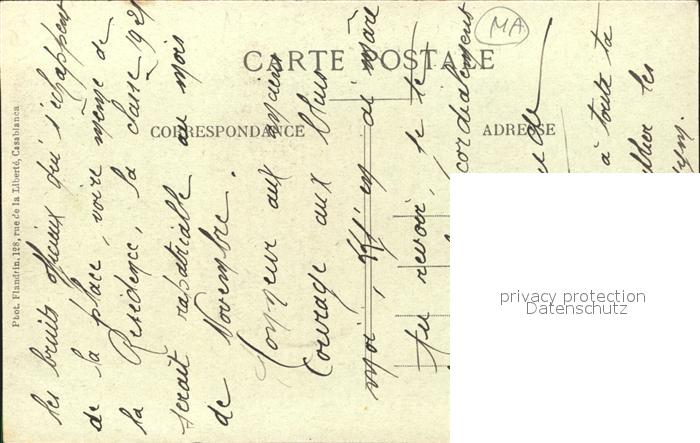 CARTE POSTALE
CORRESPONDANCE
ADRESSE
Phot. Flandrin, 128, rue de la Liberté, Casablanca
MA
les bruits officieux qui s'échappent
de la place, voire même de
la Résidence, la classe 1921
serait rapatriable au mois
de Novembre.
Honneur aux anciens
Courage aux bleus
moi,
Au revoir, je te
cordialement
à toute ta
les
privacy protection
Datenschutz